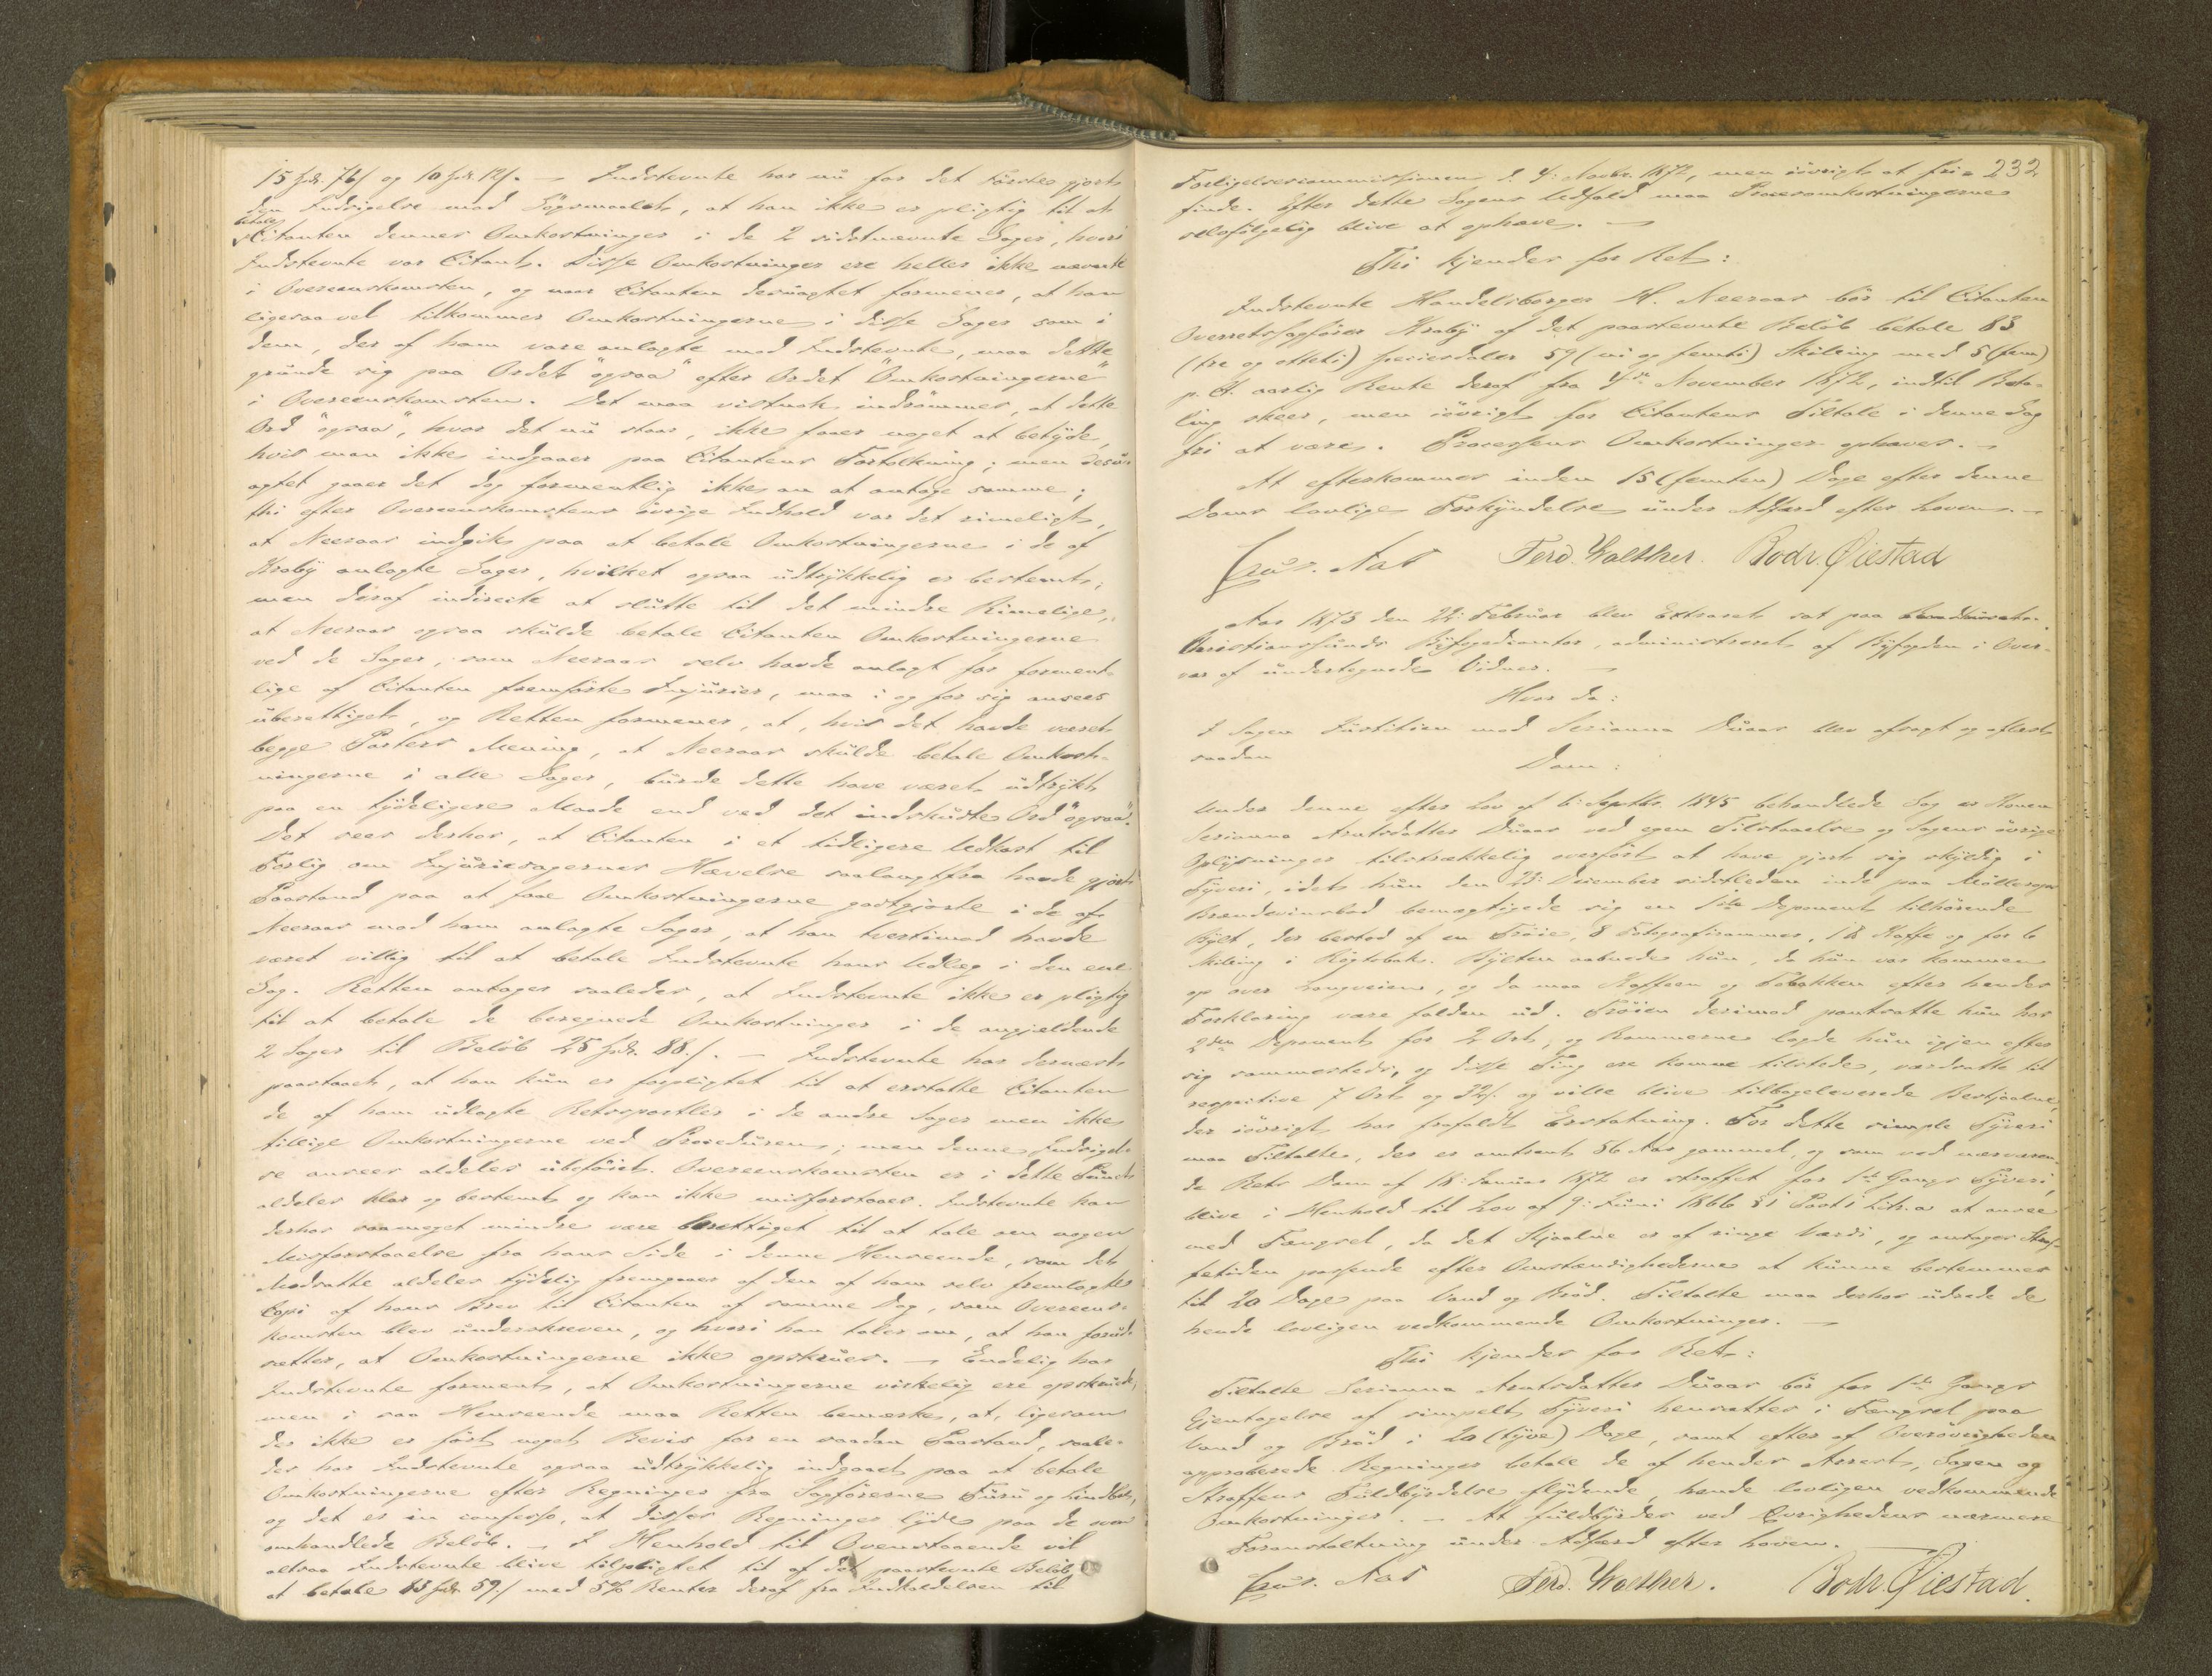 15 Spdr. 76 s og 10 Spdr. 12 s. – Indstevnte har nu for det Förstes gjort
den Indsigelse mod Sögsmaalet, at han ikke er pligtig til at
betale
Citanten dennes Omkostninger i de 2 sidstnævnte Sager, hvori
Indstevnte var Citant. Disse Omkostninger ere heller ikke nævnte
i Overeenskomsten, og naar Citanten desuagtet formener, at han
ligesaavel tilkommer Omkostningerne i disse Sager som i
dem, der af ham vare anlagte mod Indstevnte, maa dette
grunde sig paa Ordet "ogsaa" efter Ordet "Omkostningerne"
i Overeenskomsten. Det maa vistnok indrömmes, at dette
Ord "ogsaa", hvor det nu staar, ikke faaer noget at betyde,
hvis man ikke indgaaer paa Citantens Fortolkning; men desu-
agtet gaaer det dog formentlig ikke an at antage samme;
thi efter Overeenskomstens övrige Indhold var det rimeligt,
at Neeraar indgik paa at betale Omkostningerne i de af
Kraby anlagte Sager, hvilket ogsaa udtrykkelig er bestemt;
men deraf indirecte at slutte til det mindre Rimelige,
at Neeraar ogsaa skulde betale Citanten Omkostningerne
ved de Sager, som Neeraar selv havde anlagt for forment-
lige af Citanten fremförte Injurier, maa i og for sig ansees
uberettiget, og Retten formener, at, hvis det havde været
begge Parters Mening, at Neeraar skulde betale Omkost-
ningerne i alle Sager, burde dette have været udtrykt
paa en tydeligere Maade end ved det indskudte Ord "ogsaa".
Det sees derhos, at Citanten i et tidligere Udkast til
Forlig om Injuriesagernes Hævelse saalangtfra havde gjort
Paastand paa at faae Omkostningerne godtgjorte i de af
Neeraar mod ham anlagte Sager, at han tvertimod havde
været villig til at betale Indstevnte hans Udlæg i den ene
Sag. Retten antager saaledes, at Indstevnte ikke er pligtig
til at betale de beregnede Omkostninger i de angjældende
2 Sager til Belöb 25 Spdr. 88 s. – Indstevnte har dernæst
paastaaet, at han kun er forpligtet til at erstatte Citanten
de af ham udlagte Retsportler i de andre Sager men ikke
tillige Omkostningerne ved Proceduren; men denne Indsigel-
se ansees aldeles ubeföiet. Overeenskomsten er i dette Punct
aldeles klar og bestemt og kan ikke misforstaaes. Indstevnte kan
derhos saameget mindre være berettiget til at tale om nogen
Misforstaaelse fra hans Side i denne Henseende, som det
Modsatte aldeles tydelig fremgaaer af den af ham selv fremlagte
Copi af hans Brev til Citanten af samme Dag, som Overeens-
komsten blev underskreven, og hvori han taler om, at han forud-
sætter, at Omkostningerne ikke opskrues. – Endelig har
Indstevnte forment, at Omkostningerne virkelig ere opskruede,
men i saa Henseende maa Retten bemærke, at, ligesom
der ikke er fört noget Beviis for en saadan Paastand, saale-
des har Indstevnte ogsaa udtrykkelig indgaaet paa at betale
Omkostningerne efter Regninger fra Sagförerne Furu og Lindboe,
og det er in confesso, at disses Regninger lyde paa de oven-
omhandlede Belöb. – I Henhold til Ovenstaaende vil
altsaa Indstevnte blive tilpligtet til af det paastevnte Belöb
at betale 83 Spdr. 59 s med 5% Renter deraf fra Indkaldelsen til
232
Forligelsescommissionen d. 4: Novbr. 1872, men iövrigt at fri-
finde. Efter dette Sagens Udfald maa Procesomkostningerne
selvfölgelig blive at ophæve. –
Thi kjendes for Ret:
Indstevnte Handelsborger H. Neeraar bör til Citanten
Overretssagförer Kraby af det paastevnte Belöb betale 83
(tre og otteti) Speciesdaler 59 (ni og femti) Skilling med 5 (fem)
p. Ct. aarlig Rente deraf fra 4de November 1872, indtil Beta-
ling skeer, men iövrigt for Citantens Tiltale i denne Sag
fri at være. Processens Omkostninger ophæves. –
At efterkommes inden 15 (femten) Dage efter denne
Doms lovlige Forkyndelse under Adfærd efter Loven. –
Ferd. Walther. Bodr. Øiestad
Aar 1873 den 22: Februar blev Extraret sat paa
Christianssunds Byfogedcontor, administreret af Byfogden i Over-
vær af undertegnede Vidner. –
Hvor da:
I Sagen Justitien mod Serianna Duaas blev afsagt og oplæst
saadan
Dom:
Under denne efter Lov af 6: Septbr. 1845 behandlede Sag er Konen
Serianna Arntsdatter Duaas ved egen Tilstaaelse og Sagens övrige
Oplysninger tilstrækkelig overfört at have gjort sig skyldig i
Tyveri, idet hun den 23: December sidstleden inde paa Möllerops
Brændevinsbod bemægtigede sig en 1ste Deponent tilhörende
Bylt, der bestod af en Tröie, 8 Fotografirammer, 1 ℔ Kaffe og for 6
Skilling i Rögtobak. Bylten aabnede hun, da hun var kommen
op over Langveien, og da maa Kaffeen og Tobakken efter hendes
Forklaring være falden ud. Tröien derimod pantsatte hun hos
2den Deponent for 2 Ort, og Rammerne lagde hun igjen efter
sig sammesteds, og disse Ting ere komne tilstede, værdsatte til
respective 7 Ort og 32 s. og ville blive tilbageleverede Bestjaalne,
der iövrigt har frafaldt Erstatning. For dette simple Tyveri
maa Tiltalte, der er omtrent 36 Aar gammel, og som ved nærværen-
de Rets Dom af 18: Januar 1872 er straffet for 1ste Gangs Tyveri,
blive i Henhold til Lov af 9: Juni 1866 §1 Post 1 Litr. a at ansee
med Fængsel, da det Stjaalne er af ringe Værdi, og antages Straf-
fetiden passende efter Omstændighederne at kunne bestemmes
til 20 Dage paa Vand og Bröd. Tiltalte maa derhos udrede de
hende lovligen vedkommende Omkostninger. –
Thi kjendes for Ret:
Tiltalte Serianna Arntsdatter Duaas bör for 1ste Gangs
Gjentagelse af simpelt Tyveri hensættes i Fængsel paa
Vand og Bröd i 20 (tyve) Dage, samt efter af Overövrigheden
approberede Regninger betale de af hendes Arrest, Sagen og
Straffens Fuldbyrdelse flydende, hende lovligen vedkommende
Omkostninger. – At fuldbyrdes ved Övrighedens nærmere
Foranstaltning under Adfærd efter Loven.
Ferd. Walther. Bodr. Øiestad.